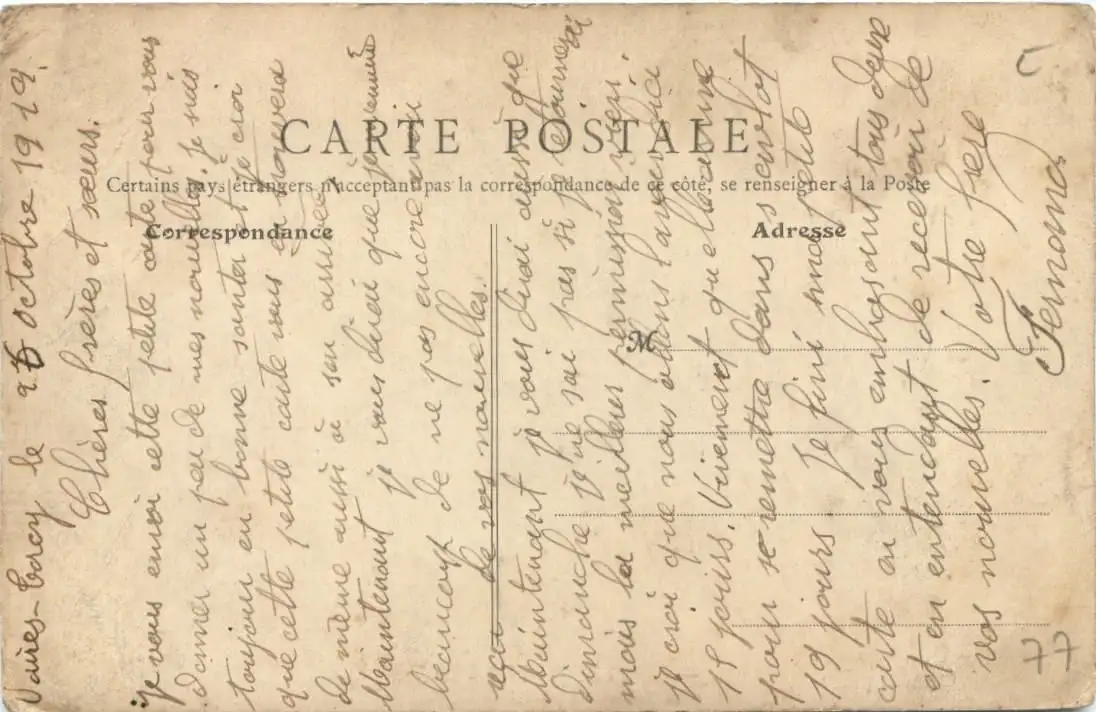 CARTE POSTALE
Certains pays étrangers n'acceptant pas la correspondance de ce côté, se renseigner à la Poste
Correspondance
Adresse
M
Vaires-Torcy le 26 Octobre 1919.
Chères frères et sœurs.
Je vous envoi cette petite carte pour vous
donner un peu de mes nouvelles. Je suis
toujours en bonne santer et je croi
que cette petite carte vous en trouvera
de même aussi à son arrivée.
Maintenant je vous dirai que je
beaucoup de ne pas encore avoir
de vos nouvelles.
Maintenant je vous dirai aussi que
dimanche je ne sai pas si je retournerai
mois la meilleure permission
je croi que nous allons l'avoir d'ici
15 jours. Vivement qu'elle arrive
pour se remettre dans
19 jours. Je fini ma petite
carte en vous embrassant tous deux
et en entendant de recevoir de
vos nouvelles. Votre frère
Fernand
77